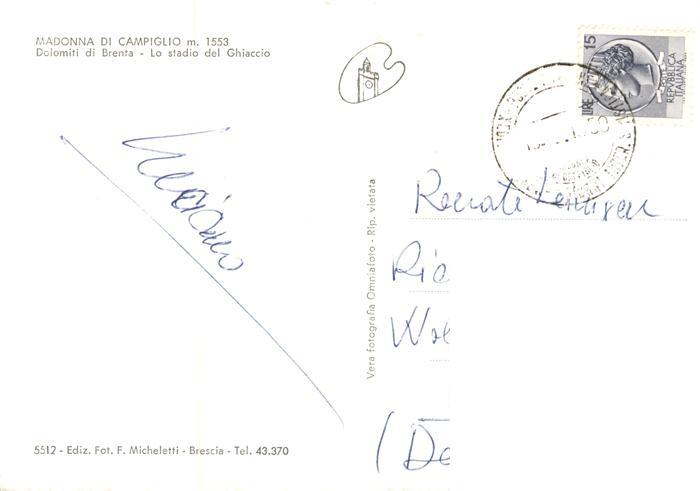 MADONNA DI CAMPIGLIO m. 1553
Dolomiti di Brenta - Lo stadio del Ghiaccio
LIRE 15
REPVBBLICA
ITALIANA
Luciano
Renate
Ric
Wol
(De
Vera fotografia Omniafoto - Rip. vietata
5512 - Ediz. Fot. F. Micheletti - Brescia - Tel. 43.370